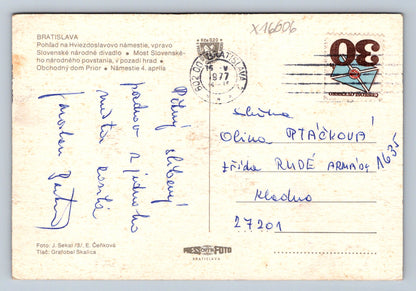 BRATISLAVA
Pohľad na Hviezdoslavovo námestie, vpravo
Slovenské národné divadlo • Most Slovenské-
ho národného povstania, v pozadí hrad •
Obchodný dom Prior • Námestie 4. apríla
X16606
BRATISLAVA
1977
30
Slečna
Olina PTÁČKOVÁ
třída RUDÉ ARMÁDY 1635
Kladno
27201
Pěkný
pozdrav z jednoho
města
Jaroslav
Foto: J. Sekal /3/, E. Čeňková
Tlač: Grafobal Skalica
PRESSFOTO
BRATISLAVA